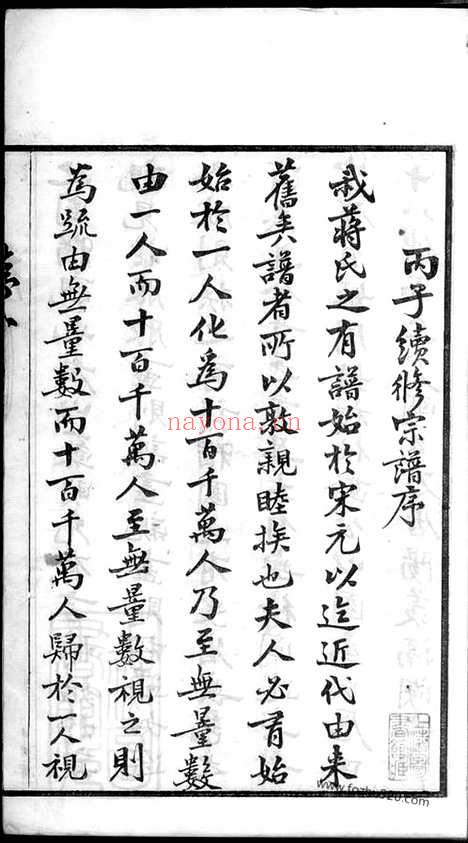 丙子續修宗譜序
我蔣氏之有譜始於宋元以迄近代由来
舊矣譜者所以敦親睦族也夫人必有始
始於一人化爲十百千萬人乃至無量數
由一人而十百千萬人至無量數視之則
為疏由無量數而十百千萬人歸於一人視
nayona.cn
www.fozhu920.com